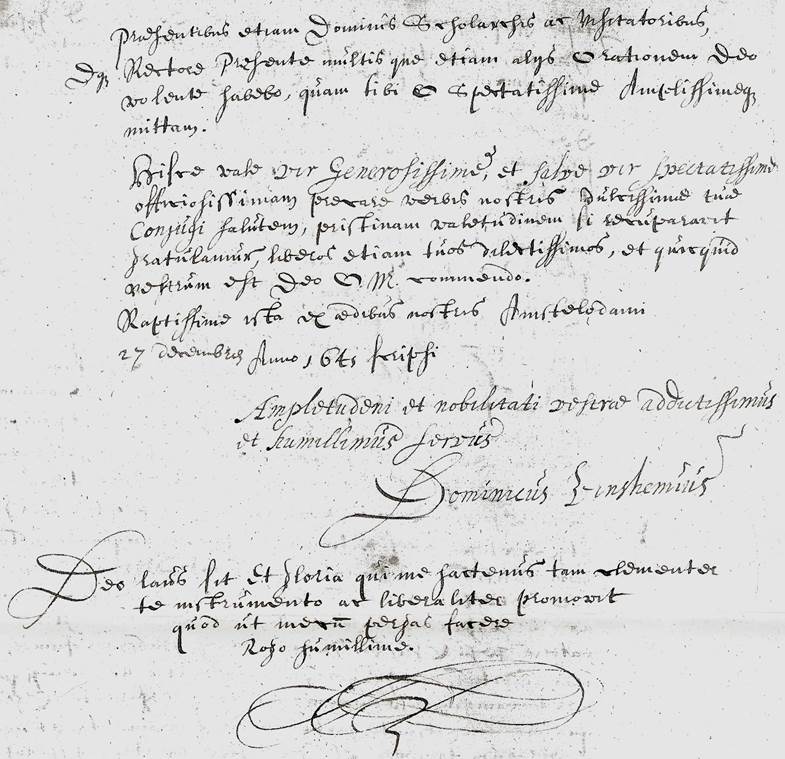 Præsentibus etiam Dominis Scholarchis ac Visitatoribus,
Dq Rectore Presente multis que etiam alys Orationem Deo
volente habebo, quam tibi O Spectatissime Amplissimeq
mittam.
Hisce vale vir Generosissime, et salve vir spectatissime
officiosissimam precare verbis nostris dulcissimæ tuæ
Conjugi salutem, pristinam valetudinem si recuparavit
gratulamur, liberos etiam tuos dilectissimos, et quicquid
vestrum est Deo O. M. commendo.
Raptissime ista ex ædibus nostris Amstelodami
27 decembris Anno 1641 scripsi
Ampletudeni et nobilitati vestræ addictissimus
et humillimus servus
Dominicus
Deo laus sit et gloria qui me hactenus tam clementer
te instrumento ac liberaliter promovit
quod ut mecū pergas facere
Rogo humillime.